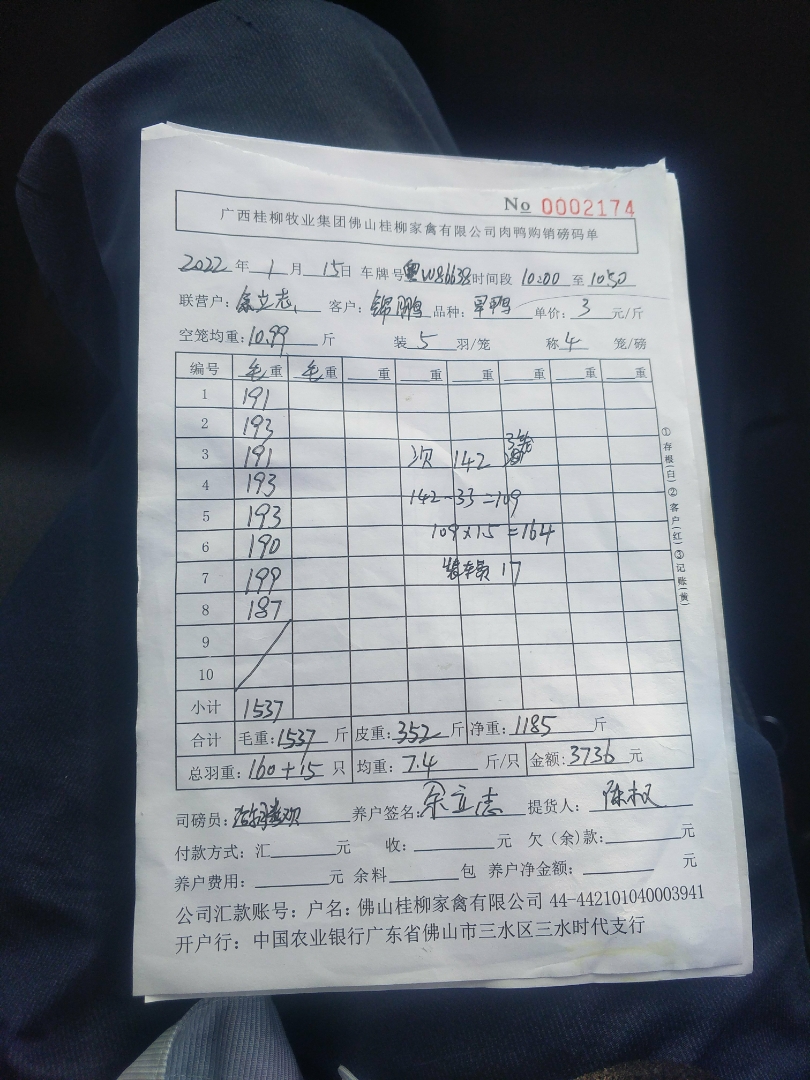 No 0002174
广西桂柳牧业集团佛山桂柳家禽有限公司肉鸭购销磅码单
2022年 1月 15日 车牌号 粤W86638 时间段 10:00 至 1050
联营户：余立志 客户：锦鹏 品种：旱鸭 单价：3 元/斤
空笼均重：10.99 斤 装 5 羽/笼 称 4 笼/磅
编号 毛重 毛重 重 重 重 重 重 重
1 191
2 193
3 191 次 142 3笼
4 193 142-33=109
5 193 109×1.5=164
6 190 装车员 17
7 199
8 187
9
10
小计 1537
合计 毛重：1537 斤 皮重：352 斤 净重：1185 斤
总羽重：160+15 只 均重：7.4 斤/只 金额：3736 元
司磅员： 养户签名：余立志 提货人：陈权
付款方式：汇 元 收： 元 欠（余）款： 元
养户费用： 元 余料 包 养户净金额： 元
公司汇款账号：户名：佛山桂柳家禽有限公司 44-442101040003941
开户行：中国农业银行广东省佛山市三水区三水时代支行
①存根(白)②客户(红)③记账(黄)